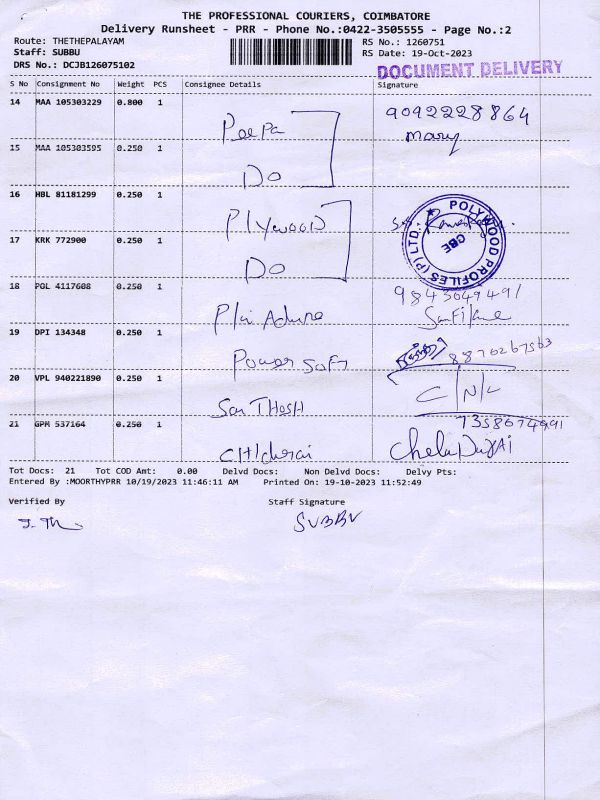 THE PROFESSIONAL COURIERS, COIMBATORE
Delivery Runsheet - PRR - Phone No.:0422-3505555 - Page No.:2
Route: THETHEPALAYAM RS No.: 1260751
Staff: SUBBU RS Date: 19-Oct-2023
DRS No.: DCJB126075102 DOCUMENT DELIVERY
S No Consignment No Weight PCS Consignee Details Signature
14 MAA 105303229 0.800 1 Peepa 9092228864
Mary
15 MAA 105303595 0.250 1 Do
16 HBL 81181299 0.250 1 Plywood
POLYWOOD PROFILES (P) LTD. CBE
17 KRK 772900 0.250 1 Do
18 POL 4117608 0.250 1
19 DPI 134348 0.250 1 Power Soft 8870267563
20 VPL 940221890 0.250 1 San THosH C/N/L
21 GPM 537164 0.250 1
Tot Docs: 21 Tot COD Amt: 0.00 Delvd Docs: Non Delvd Docs: Delvy Pts:
Entered By :MOORTHYPRR 10/19/2023 11:46:11 AM Printed On: 19-10-2023 11:52:49
Verified By Staff Signature
SUBBU